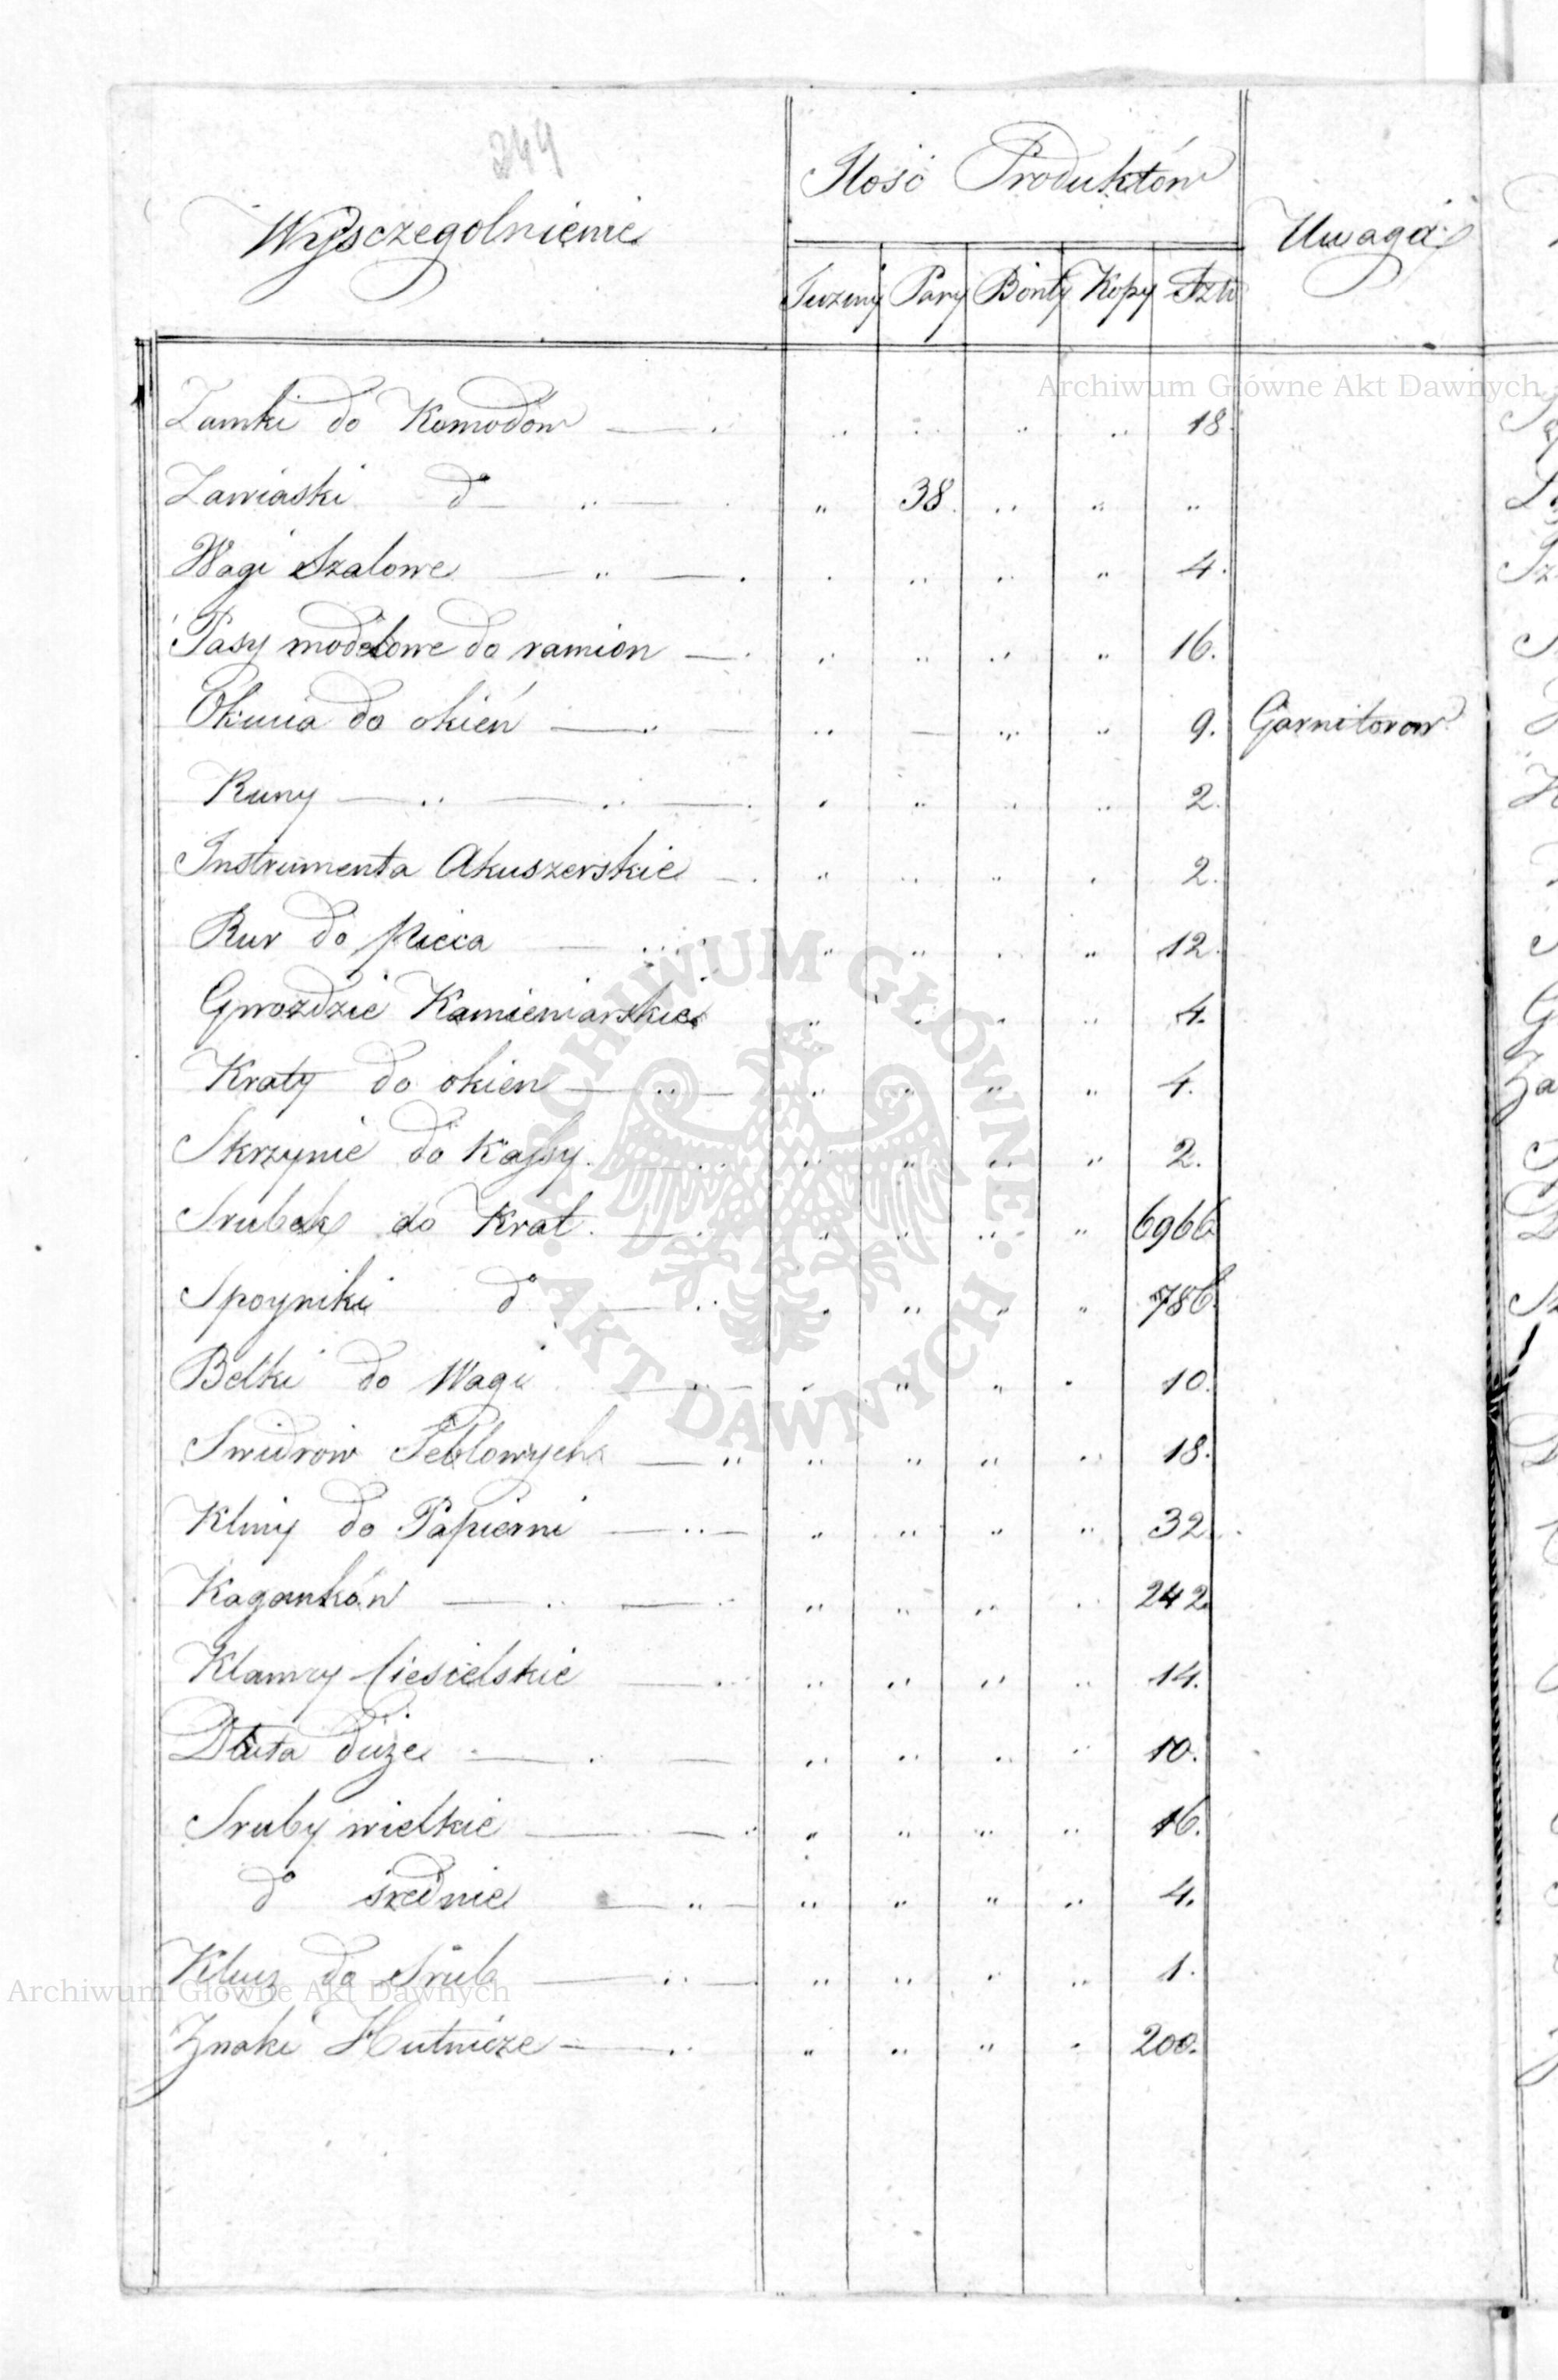 244
Wysczegolnienie
Ilość Produktów
Uwaga
Tuziny Pary Bonty Kopy Sztu
Archiwum Główne Akt Dawnych
Zamki do Komodów 18.
Zawiaski do 38.
Wagi Szalowe 4.
Pasy modelowe do ramion 16.
Okucia do okień 9. Garniturow
Runy 2.
Instrumenta Akuszerskie 2.
Rur do Pieca 12.
Gwozdzie Kamieniarskie 4.
Kraty do okien 4.
Skrzynie do Kassy 2.
Srubek do Krat 6966
Spoyniki do 786.
Belki do Wagi 10.
Swidrow 18.
Kliny do Papierni 32.
Kagankón 242.
Klamry Ciesielskie 14.
Dłuta duże 10.
Sruby wielkie 16.
do srednie 4.
Klucz do Srub 1.
Archiwum Główne Akt Dawnych
Znaki Hutnicze 200.
ARCHIWUM GŁÓWNE
AKT DAWNYCH